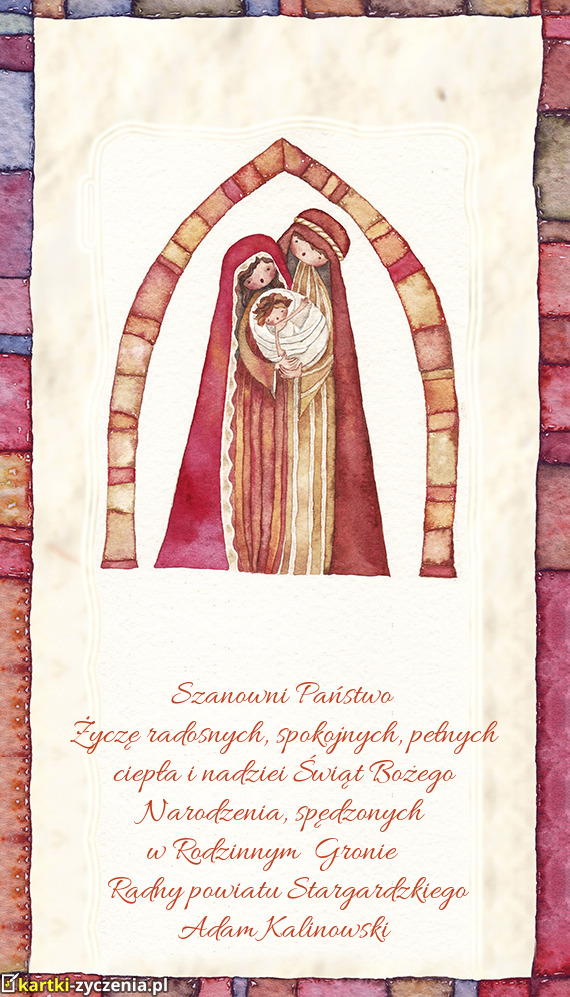 Szanowni Państwo
Życzę radosnych, spokojnych, pełnych
ciepła i nadziei Świąt Bożego
Narodzenia, spędzonych
w Rodzinnym Gronie
Radny powiatu Stargardzkiego
Adam Kalinowski
kartki-zyczenia.pl